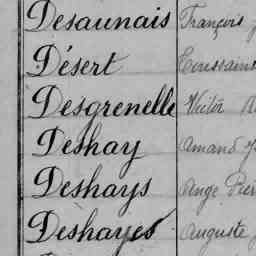 Desaunais François
Désert Toussaint
Desgrenelle Victor
Deshay Amand
Deshays Ange Pier
Deshayes Auguste